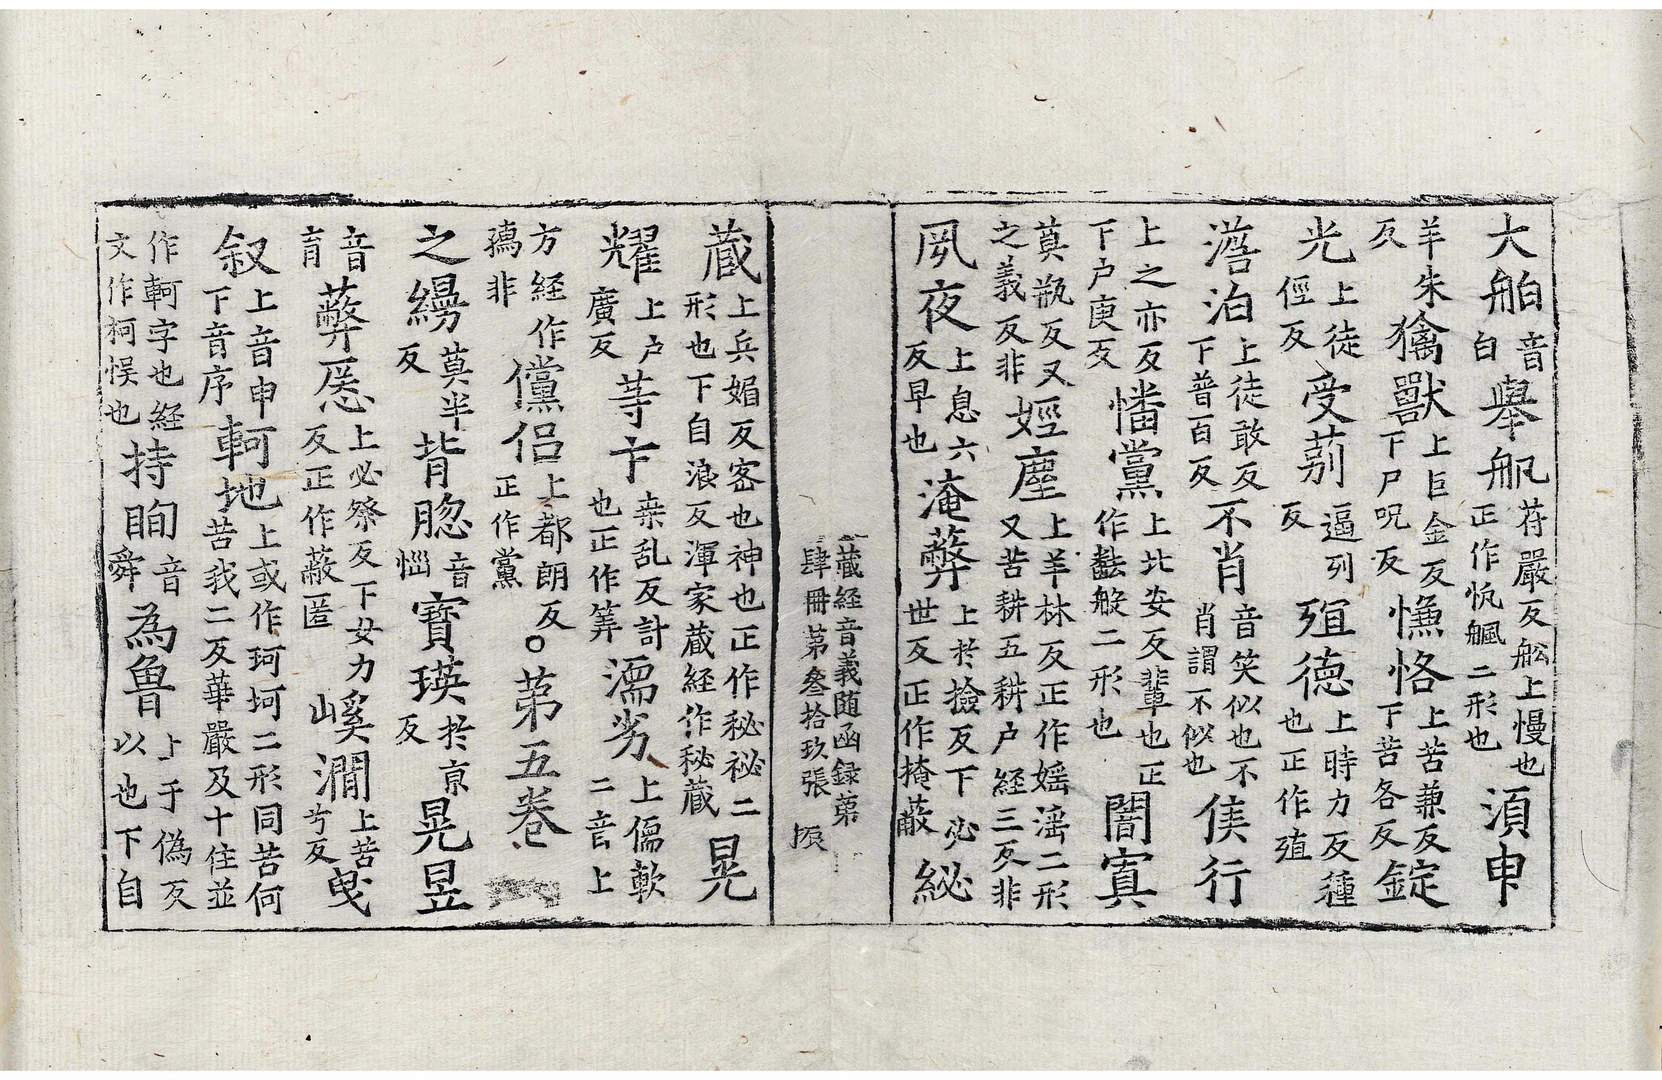 大舶音白舉舩苻嚴反舩上慢也正作㠶颿二形也須申
羊朱反擒獸上巨金反下尸呪反慊悋上苦兼反下苦各反錠
光上徒徑反受莂逼列反殖德上時力反種也正作殖
澹泊上徒敢反下普百反不肖音笑似也不肖謂不似也俟行
上之亦反下户庚反憣黨上北安反輩也正作般二形也闇寘
莫瓶反又之義反非婬塵上羊林反正作婬滛二形又苦耕五耕户經三反非
夙夜上息六反早也淹蔽上於撿反下必世反正作掩蔽祕
藏經音義随函録第
肆冊第叄拾玖張 振
蔵上兵媚反密也神也正作秘祕二形也下自浪反渾家蔵經作秘蔵晃
耀上户廣反䓁卞桒乱反計也正作筭濡劣上儒軟二音上
方経作 非儻侣上都朗反正作黨○第五卷
之縵莫半反背𦛁音惱寶瑛於亰反晃昱
音育蔽慝上必祭反下女力反正作蔽匿嵠澗上苦兮反曵
叙上音申下音序軻地上或作珂坷二形同苦何苦我二反華嚴及十住並
作軻字也経文作柯悮也持眴音舜為魯上于偽反以也下自